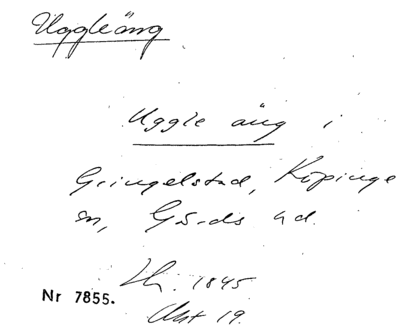 Uggleäng
Uggle äng i
Gringelstad, Köpinge
sn, Gärds hd.
Lh. 1845
Nr 7855.
Akt 19.